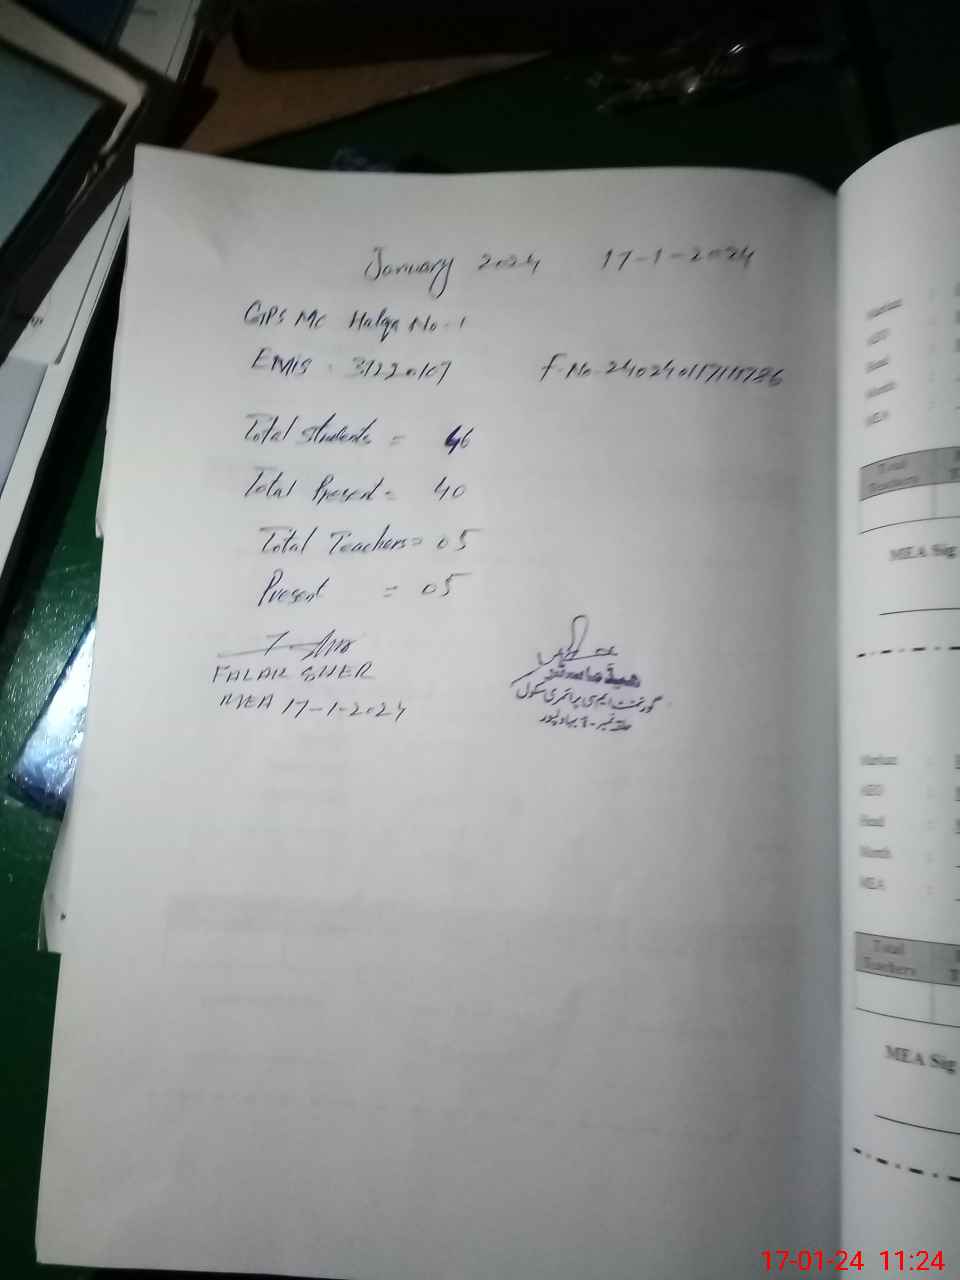 January 2024 17-1-2024
GPS MC Halqa No-1
EMIS : 31220107 F.No-24024011711786
Total Students = 46
Total Present = 40
Total Teachers = 05
Present = 05
FALAK SHER
MEA 17-1-2024
ھیڈ ماسٹر
گورنمنٹ ایم سی پرائمری سکول
حلقہ نمبر-1 بہاولپور
Markaz :
AEO :
Head :
Month :
MEA :
Total
Teachers
MEA Sig
Markaz :
AEO :
Head :
Month :
MEA :
Total
Teachers
MEA Sig
17-01-24 11:24